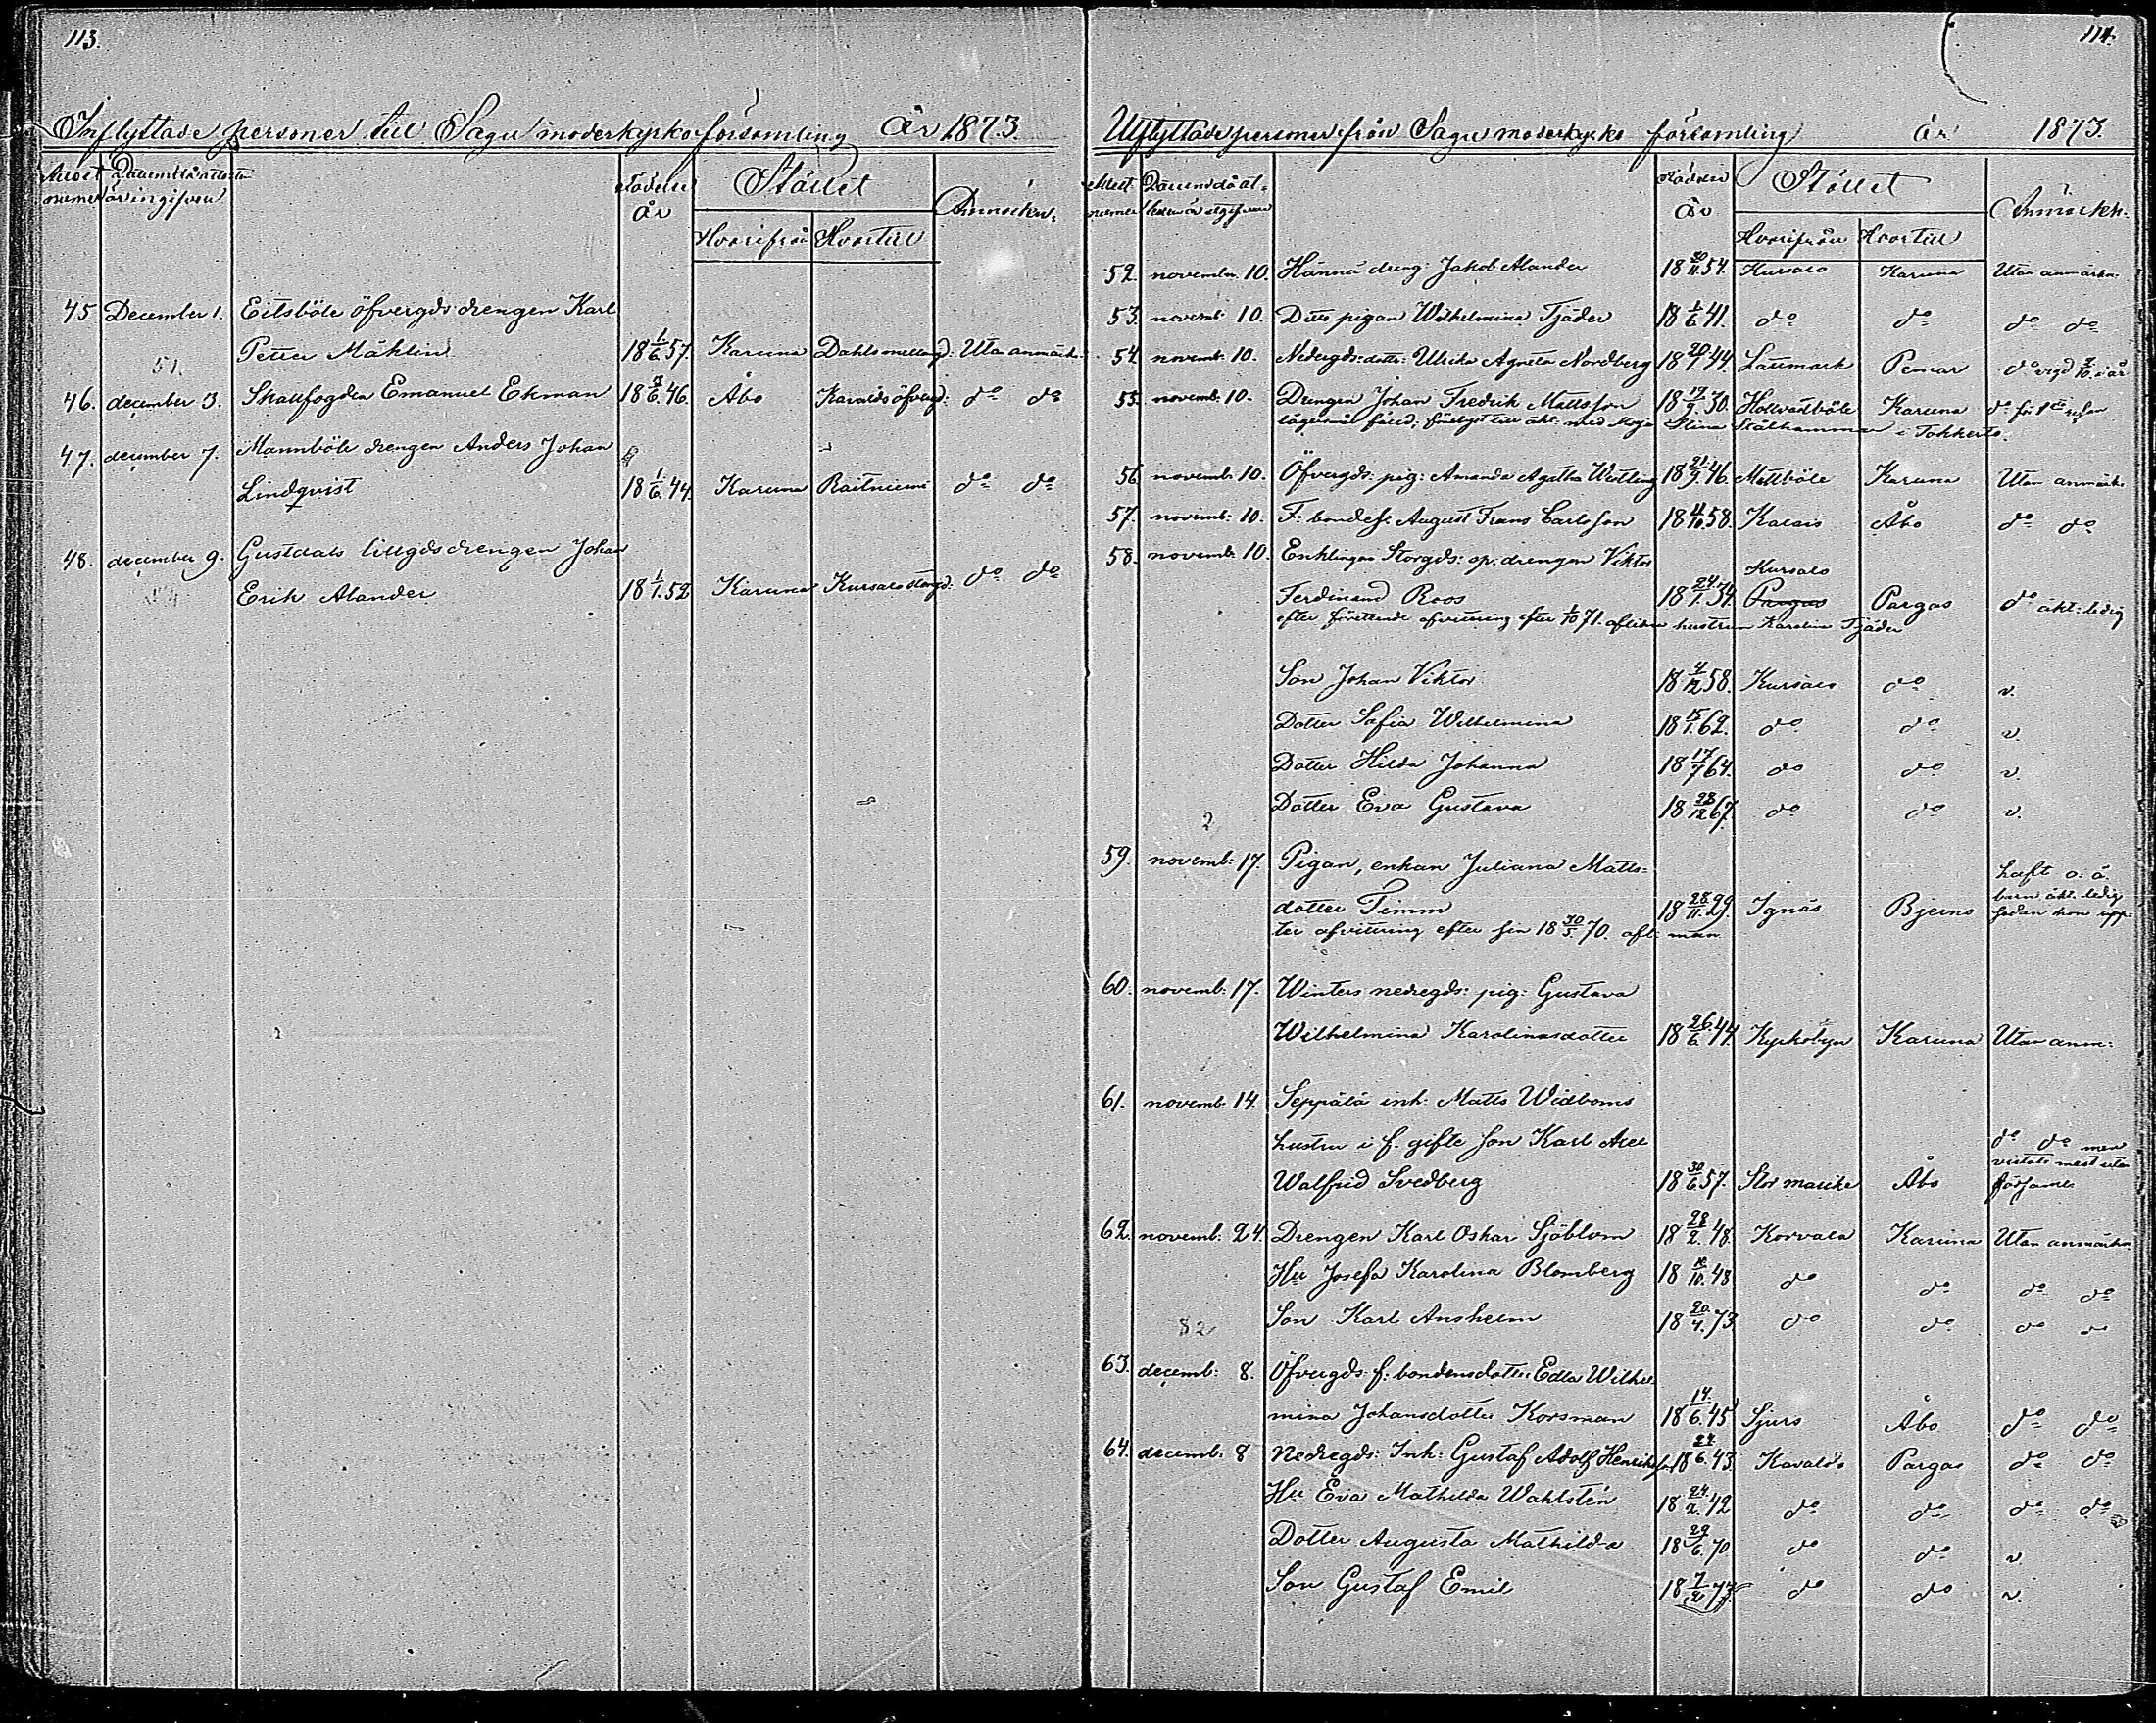 113.
Inflyttade personer till Sagu moderkyrko församling År 1873.
Attest numer Datum då attesten är ingifven Födelse År Stället Anmärkn:
Hvarifrån Hvartill
45 December 1. Eitsböle öfvergds drengen Karl
Petter Mählin 18 1/6 57. Karuna Dahlsmellang: Utan anmärk:
51.
46. december 3. Skallfogden Emanuel Ekman 18 9/6. 46. Åbo Kavaldsöfverg: do do
47. december 7. Mannböle drengen Anders Johan
Lindqvist 18 1/6. 44. Karuna Raitniemi do do
48. december 9. Gustdals lillgds drengen Johan
Erik Alander 18 1/1. 52 Karuna Kursalo storgd: do do
114.
Utflyttade personer från Sagu moderkyrko församling år 1873.
Attest numer Datum då attesten är utgifven Födelse År Stället Anmärkn.
Hvarifrån Hvartill
52. november 10. Hännä dreng: Jakob Alander 18 20/11 54. Kursalo Karuna Utan anmärkn.
53. novemb: 10. Dito pigan Wilhelmina Tjäder 18 1/6 41. do do do do
54. novemb: 10. Nedergds: dotte: Ulrika Agneta Nordberg 18 20/1. 44. Laumark Pemar do vigd 7/10. i år
55. novemb: 10. Drengen Johan Fredrik Mattsson 18 17/9. 30. Hollvastböle Karuna do för 1sta resan
lägersmål förlid. förlofvt till äkt: med Maja Stina Stålhammar i Tokkerto.
56. novemb: 10. Öfvergds: pig: Amanda Agatha Westling 18 21/9. 46. Mattböle Karuna Utan anmärk.
57. novemb: 10. F: bondes: August Frans Carlsson 18 4/10 58. Kalais Åbo do do
58. novemb: 10. Enklingen Storgds: sp. drengen Viktor Kursalo
Ferdinand Roos 18 24/1. 34. Pargas Pargas do äkt: ledig
efter företeende afvittring efter 1/10 71. aflidna hustrun Karolina Tjäder
Son Johan Viktor 18 4/12 58. Kursalo do v.
Dotter Sofia Wilhelmina 18 15/1. 62. do do v.
Dotter Hilda Johanna 18 17/7 64. do do v.
Dotter Eva Gustava 18 28/12 67. do do v.
2
59. novemb: 17. Pigan, enkan Juliana Matts=
dotter Timm 18 28/11. 29. Ignäs Bjerno haft o. ä. barn äkt. ledig sedan hon upp-
ter afvittring efter sin 18 30/5. 70. afl: man.
60. novemb: 17. Winters nedregds: pig: Gustava
Wilhelmina Karolinasdotter 18 26/6. 44. Kyrkobyn Karuna Utan anm:
61. novemb: 14. Seppälä inh: Matts Widboms
hustru i f. gifte son Karl Axel do do men
Walfrid Svedberg 18 30/6 57. Stor marike Åbo vistats mest utom församl:
62. novemb: 24. Drengen Karl Oskar Sjöblom 18 28/2. 48. Korvala Karuna Utan anmärkn
Hu Josefa Karolina Blomberg 18 10/10. 48 do do do do
Son Karl Anshelm 18 20/4. 73 do do do do
82
63. decemb: 8. Öfvergds: f. bondensdotter Edla Wilhel
mina Johansdotter Korsman 18 14/6. 45 Sjurs Åbo do do
64. decemb: 8 Nedregds: Inh: Gustaf Adolf Henriksson 18 24/6. 43. Kavalds Pargas do do
Hu Eva Mathilda Wahlstén 18 24/2. 42 do do do do
Dotter Augusta Mathilda 18 29/6. 70 do do v.
Son Gustaf Emil 18 7/2 73. do do v.